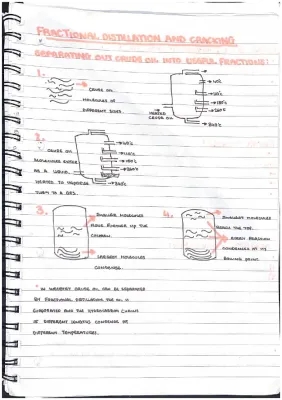 FRACTIONAL DISTILLATION AND CRACKING
SEPARATING OUT CRUDE OIL INTO USEFUL FRACTIONS:
1.
CRUDE OIL
MOLECULES OF
DIFFERENT SIZES.
→40°C
→110°C
→180°C
→260°C
→340°C
HEATED
CRUDE OIL
2.
CRUDE OIL
MOLECULES ENTER
AS A LIQUID.
HEATED TO
TURN TO A GAS.
→40°C
→110°C
→180°C
→260°C
→340°C
3.
SMALLEST MOLECULES
MOVE FURTHER UP THE
COLUMN.
LARGEST MOLECULES
CONDENSE.
4.
SMALLEST MOLECULES
REACH THE TOP.
EVERY FRACTION
CONDENSES AT ITS
BOILING POINT.
IN SUMMARY CRUDE OIL CAN BE SEPARATED
BY FRACTIONAL DISTILLATION. THE OIL IS
EVAPORATED AND THE HYDROCARBON CHAINS
OF DIFFERENT LENGTHS CONDENSE AT
DIFFERENT TEMPERATURES.